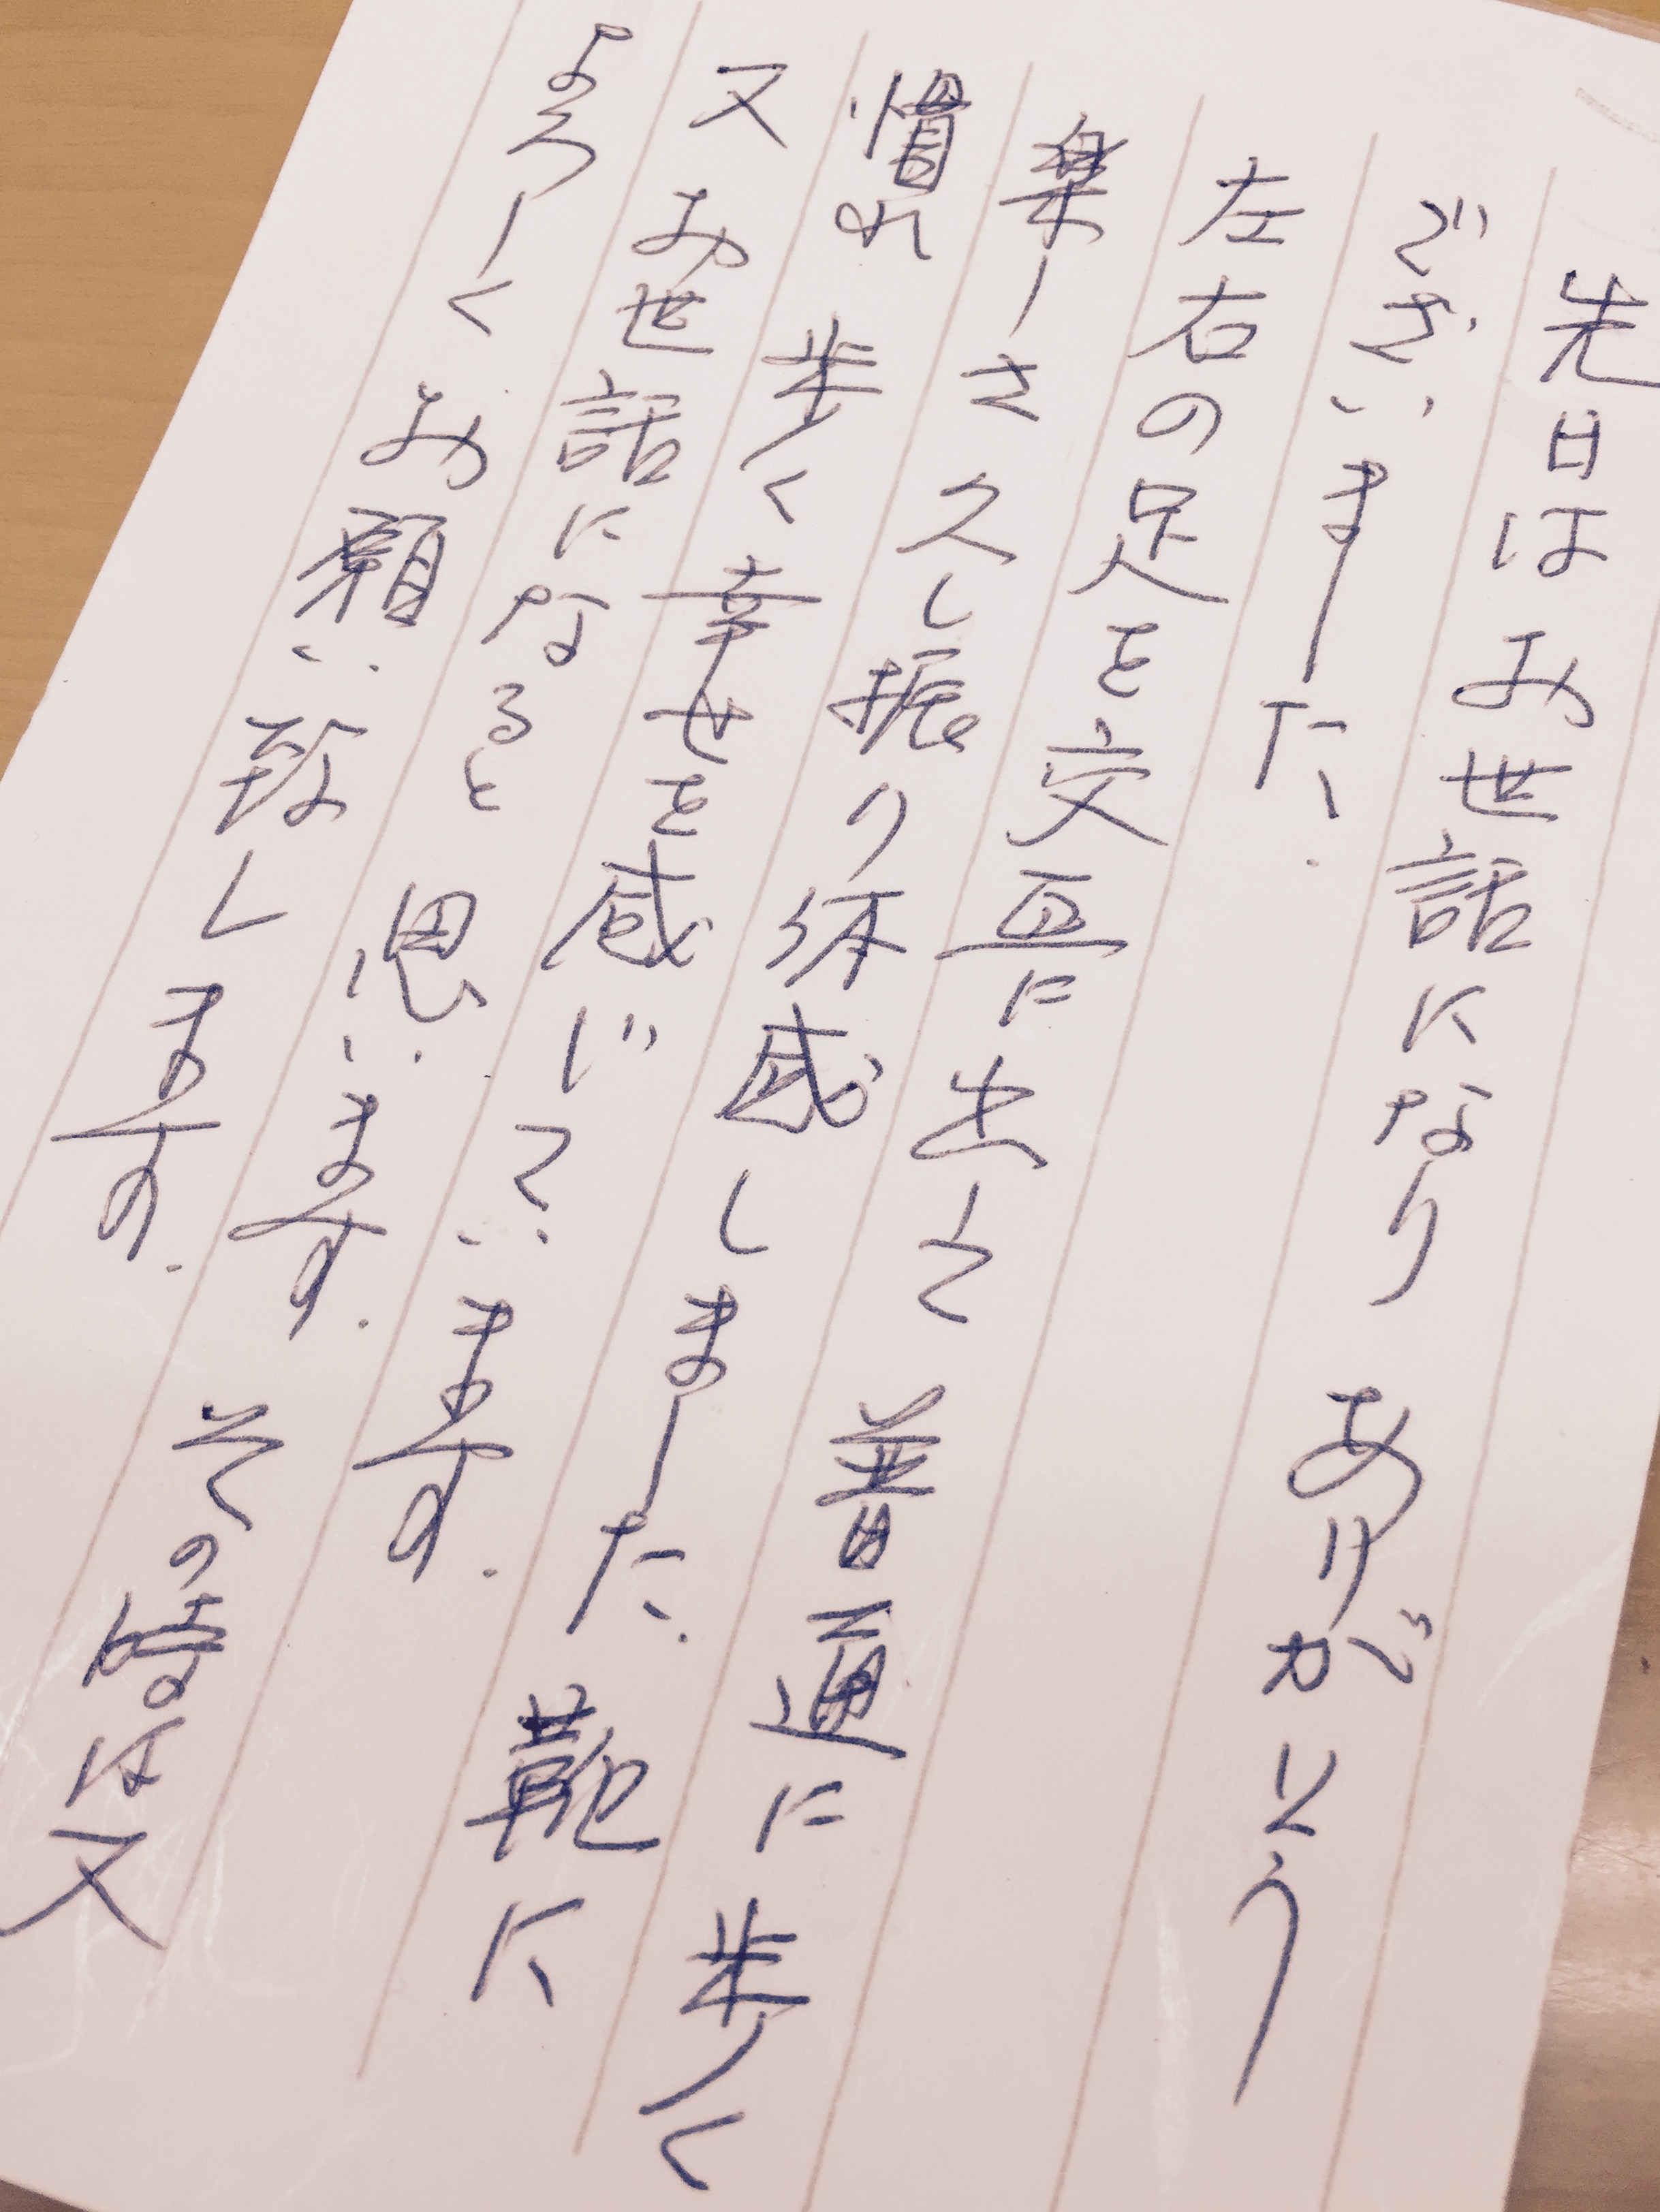 先日はお世話になり ありがとう
ございました.
左右の足を交互に出して 普通に歩く
楽しさ 久し振り体感しました. 靴に
慣れ 歩く幸せを感じています.
又 お世話になると 思います. その時は又
よろしく お願い致します.